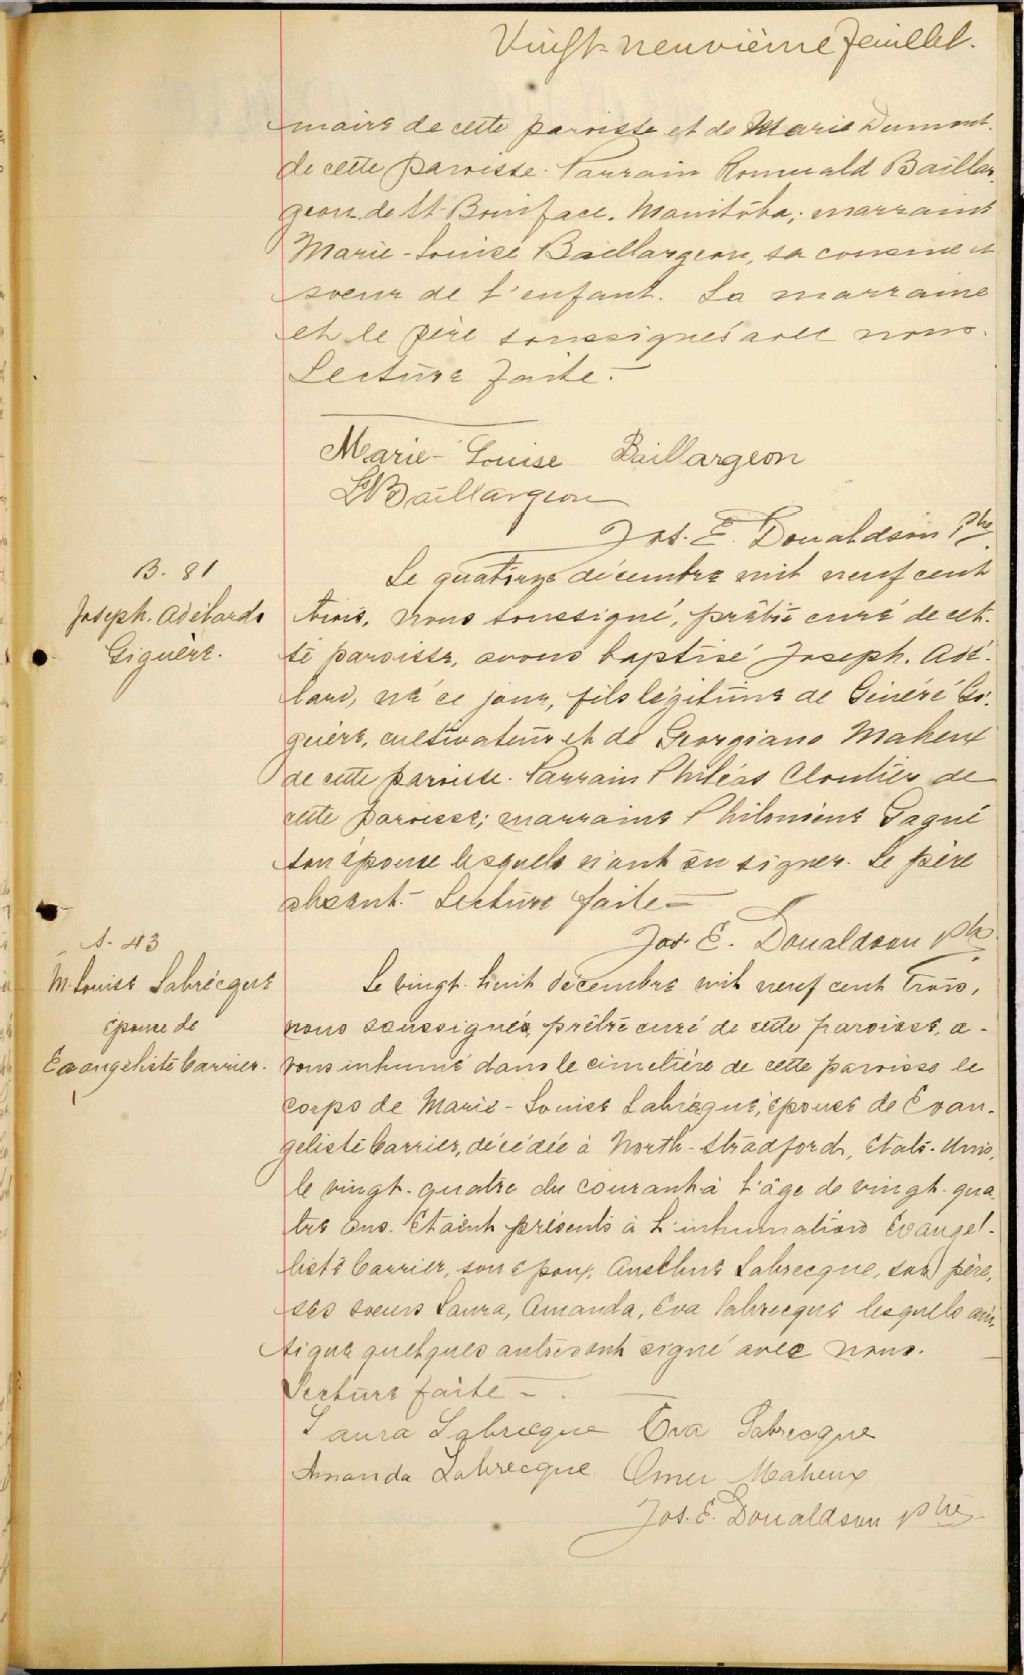 Vingt-neuvième feuillet.
maire de cette paroisse et de Marie Dumont
de cette paroisse. Parrain Romuald Baillar,
geon de St Boniface. Manitoba; marraine
Marie-Louise Baillargeon, sa cousine et
soeur de l'enfant. La marraine
et le père soussignés avec nous.
Lecture faite.—
Marie-Louise Baillargeon
Baillargeon
Jos. E. Donaldson Ptre
B. 81
Joseph. Adélard
Giguère.
Le quatorze décembre mil neuf cent
trois, nous soussigné, prêtre curé de cet-
te paroisse, avons baptisé Joseph. Adé-
lard, né ce jour, fils légitime de Généré Gi-
guère, cultivateur et de Georgiana Maheux
de cette paroisse. Parrain Philéas Cloutier de
cette paroisse; marraine Philomène Gagné
son épouse lesquels n'ont su signer. Le père
absent. Lecture faite—
Jos. E. Donaldson ptre
S. 43
M. Louise Labrecque
épouse de
Evangéliste Carrier.
Le vingt-huit décembre mil neuf cent trois,
nous soussigné, prêtre curé de cette paroisse, a-
vons inhumé dans le cimetière de cette paroisse le
corps de Marie-Louise Labrecque, épouse de Évan-
géliste Carrier, décédée à North-Stradford, Etats-Unis,
le vingt-quatre du courant à l'âge de vingt-qua-
tre ans. Étaient présents à l'inhumation Évangé-
liste Carrier, son époux, Anselme Labrecque, son père,
ses soeurs Laura, Amanda, Eva Labrecque lesquels ain-
si que quelques autres ont signé avec nous.
Lecture faite—.
Laura Labrecque Eva Labrecque
Amanda Labrecque Omer Maheux
Jos. E. Donaldson ptre